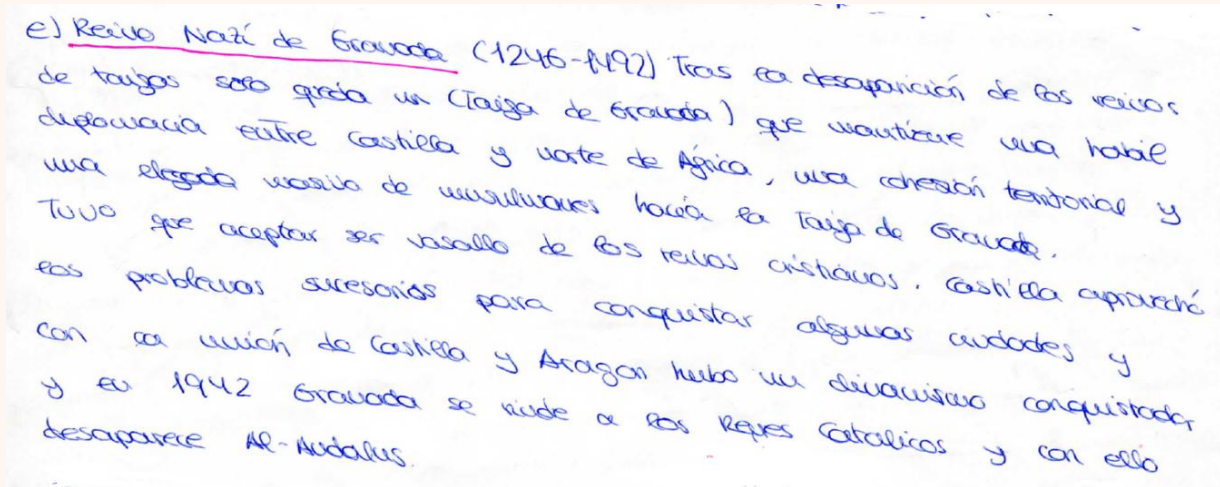 e) Reino Nazí de Granada (1246-1492) Tras la desaparición de los reinos
de taifas solo queda un (Taifa de Granada) que mantiene una habil
diplomacia entre Castilla y norte de África, una cohesión territorial y
una elegada masiva de musulmanes hacía la Taifa de Granada.
Tuvo que aceptar ser vasallo de los reinos cristianos. Castilla aprovechó
los problemas sucesorios para conquistar algunas ciudades y
con la unión de Castilla y Aragon hubo un dinamismo conquistador
y en 1942 Granada se rinde a los Reyes Catolicos y con ello
desaparece Al-Andalus.